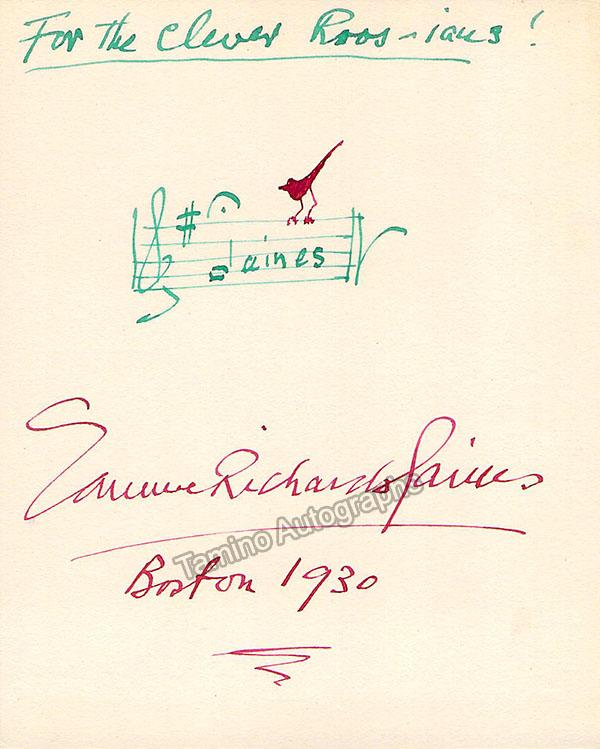 For the clever Roos-ians!
aines
Samuel Richards Gaines
Tamino Autographs
Boston 1930